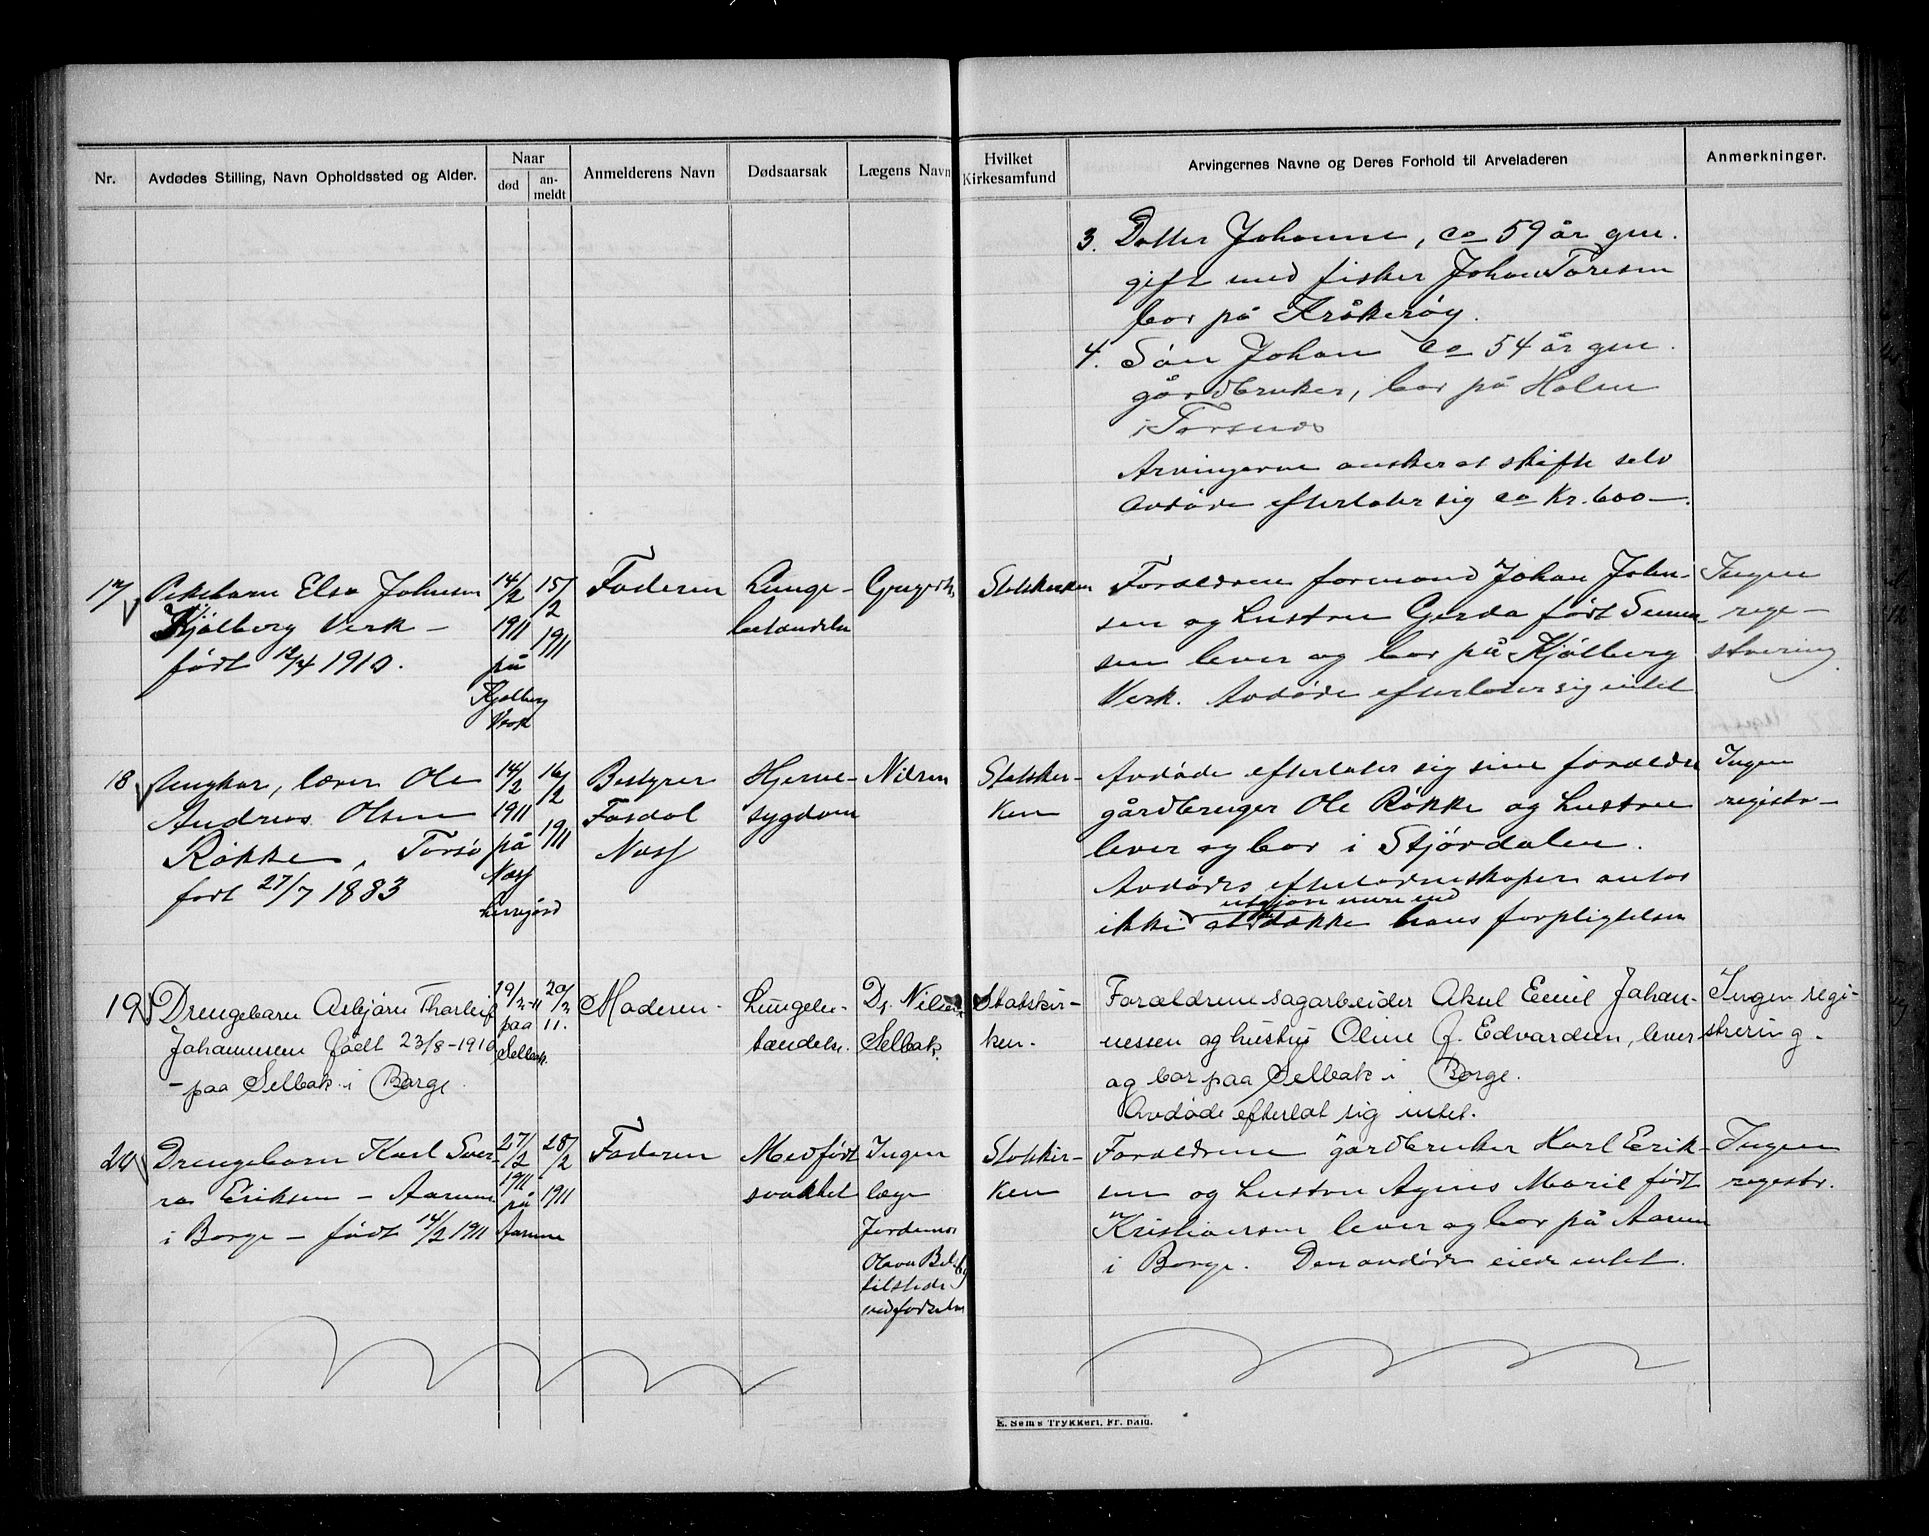 Nr.
Avdødes Stilling, Navn Opholdssted og Alder.
Naar
død
an-
meldt
Anmelderens Navn
Dødsaarsak
Lægens Navn
Hvilket
Kirkesamfund
Arvingernes Navne og Deres Forhold til Arveladeren
Anmerkninger.
3. Datter Johanne, ca 59 år gm.
gift med fisker Johan Toresen
bor på Kråkerøy.
4. Søn Johan ca 54 år gm.
gårdbruker, bor på Holm
i Torsnes
Arvingerne ønsker at skifte selv
Avdøde efterlater sig ca Kr. 600—.
17
Pikebarn Elsa Johnsen
Kjølberg Verk —
født 12/4 1910.
14/2
1911
på
Kjølberg
Verk
15/2
1911
Faderen
Lunge-
betændelse
Statskirken
Forældrene formand Johan John-
sen og hustru Gerda født
sen lever og bor på Kjølberg
Verk. Avdøde efterlater sig intet
Ingen
rege-
strering
18
Ungkar, lærer Ole
Andreas Olsen
Røkke, Torsø
født 27/7 1883
14/2
1911
på
Næss
herregård
16/2
1911
Bestyrer
Fosdal
Næss
Hjerne-
sygdom
Nilsen
Statskir-
ken
Avdøde efterlater sig sine forældre
gårdbruger Ole Røkke og hustru
lever og bor i Stjørdalen.
Avdødes efterladenskaper antas
utgjøre mere end
ikke at dække hans forpligtelser
Ingen
registr-
19
Drengebarn Asbjørn Tharleif
Johannesen født 23/8-1910
- paa Selbak i Borge.
19/2-11
paa
Selbak
20/2
11.
Moderen -
Lungebe-
tændelse.
Dr Nilsen
Selbak.
Statskir-
ken.
Forældrene sagarbeider Aksel Emil Johan-
nessen og hustru Oline f. Edvardsen, lever
og bor paa Selbak i Borge.
Avdøde efterlot sig intet.
Ingen regi-
strering.
20
Drengebarn Karl Sver-
re Eriksen — Aarum
i Borge — født 14/2 1911
27/2
1911
på
Aarum
28/2
1911
Faderen
Medfødt
svakhet
Ingen
læge
Jordemor
Olava
tilstede
ved fødselen
Statskir-
ken
Forældrene gårdbruker Karl Erik-
sen og hustru Agnes Marie født
Kristiansen lever og bor på Aarum
i Borge. Den avdøde eiede intet.
Ingen
regestr.
E. Sem's Trykkeri, Fr. hald.